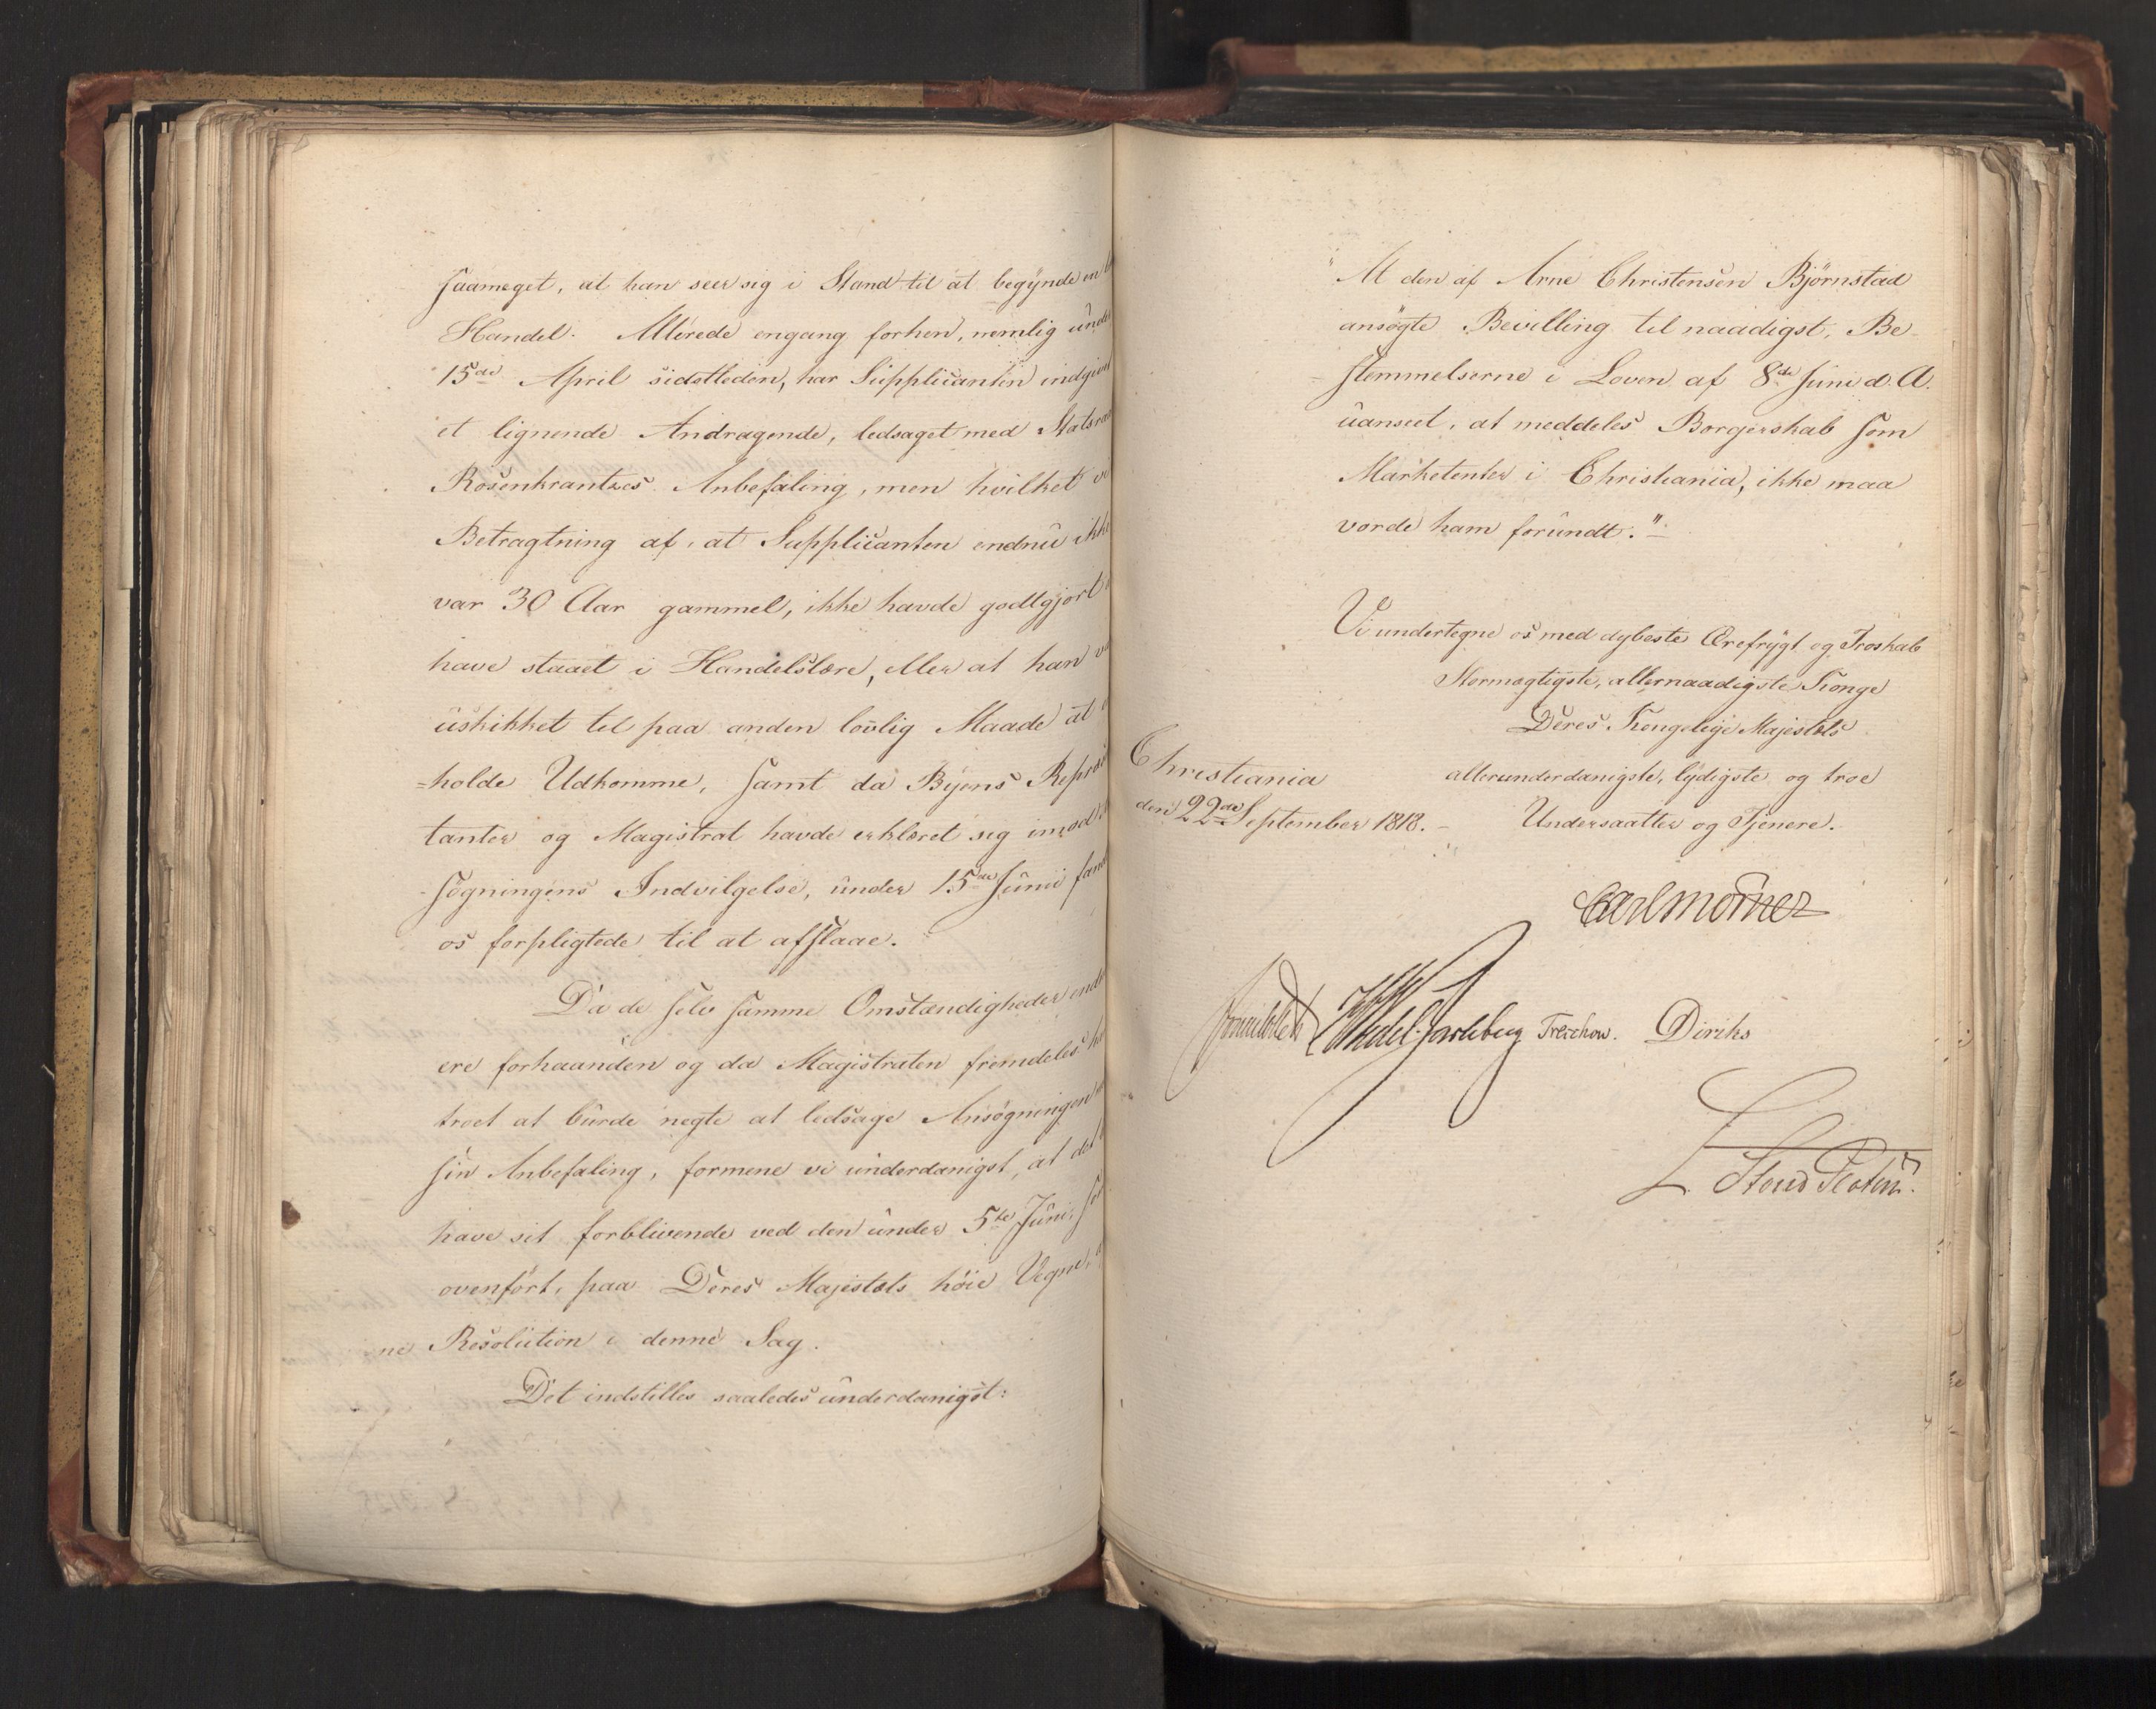 saameget, at han seer sig i Stand til at begynde en
Handel. Allerede engang forhen, nemlig under
15de April sidstleden, har Supplicanten indgivet
et lignende Andragende, ledsaget med Statsraad
Rosenkrantzes Anbefaling, men hvilket vi
Betragtning af, at Supplicanten endnu ikke
var 30 Aar gammel, ikke havde godtgjort
have staaet i Handelslære, eller at han var
uskikket til paa anden lovlig Maade at
=holde Udkomme, samt da Byens Repræsen
tanter og Magistrat havde erklæret sig imod
søgningens Indvilgelse, under 15de Junii fandt
os forpligtede til at afslaae.
Da de selv samme Omstændigheder endnu
ere forhaanden og da Magistraten fremdeles har
troet at burde negte at ledsage Ansøgningen
sin Anbefaling, formene vi underdanigst, at det
have sit forblivende ved den under 5te Juni
ovenført, paa Deres Majestæts høie Vegne,
ne Resolution i denne Sag.
Det indstilles saaledes underdanigst:
"At den af Arne Christensen Bjørnstad
ansøgte Bevilling til naadigst, Be-
stemmelserne i Loven af 8de Juni d. A.
uanseet, at meddeles Borgerskab som
Marketenter i Christiania, ikke maa
vorde ham forundt."
Vi undertegne os med dybeste Ærefrygt og Troskab
Stormægtigste, allernaadigste Konge
Deres Kongelige Majestæts
allerunderdanigste, lydigste og troe
Undersaatter og Tjenere.
Christiania
den 22de September 1818.
Carl Mörner
Sommerhielm Wedel-Jarlsberg Treschow. Diriks
L. Stoud Platou.